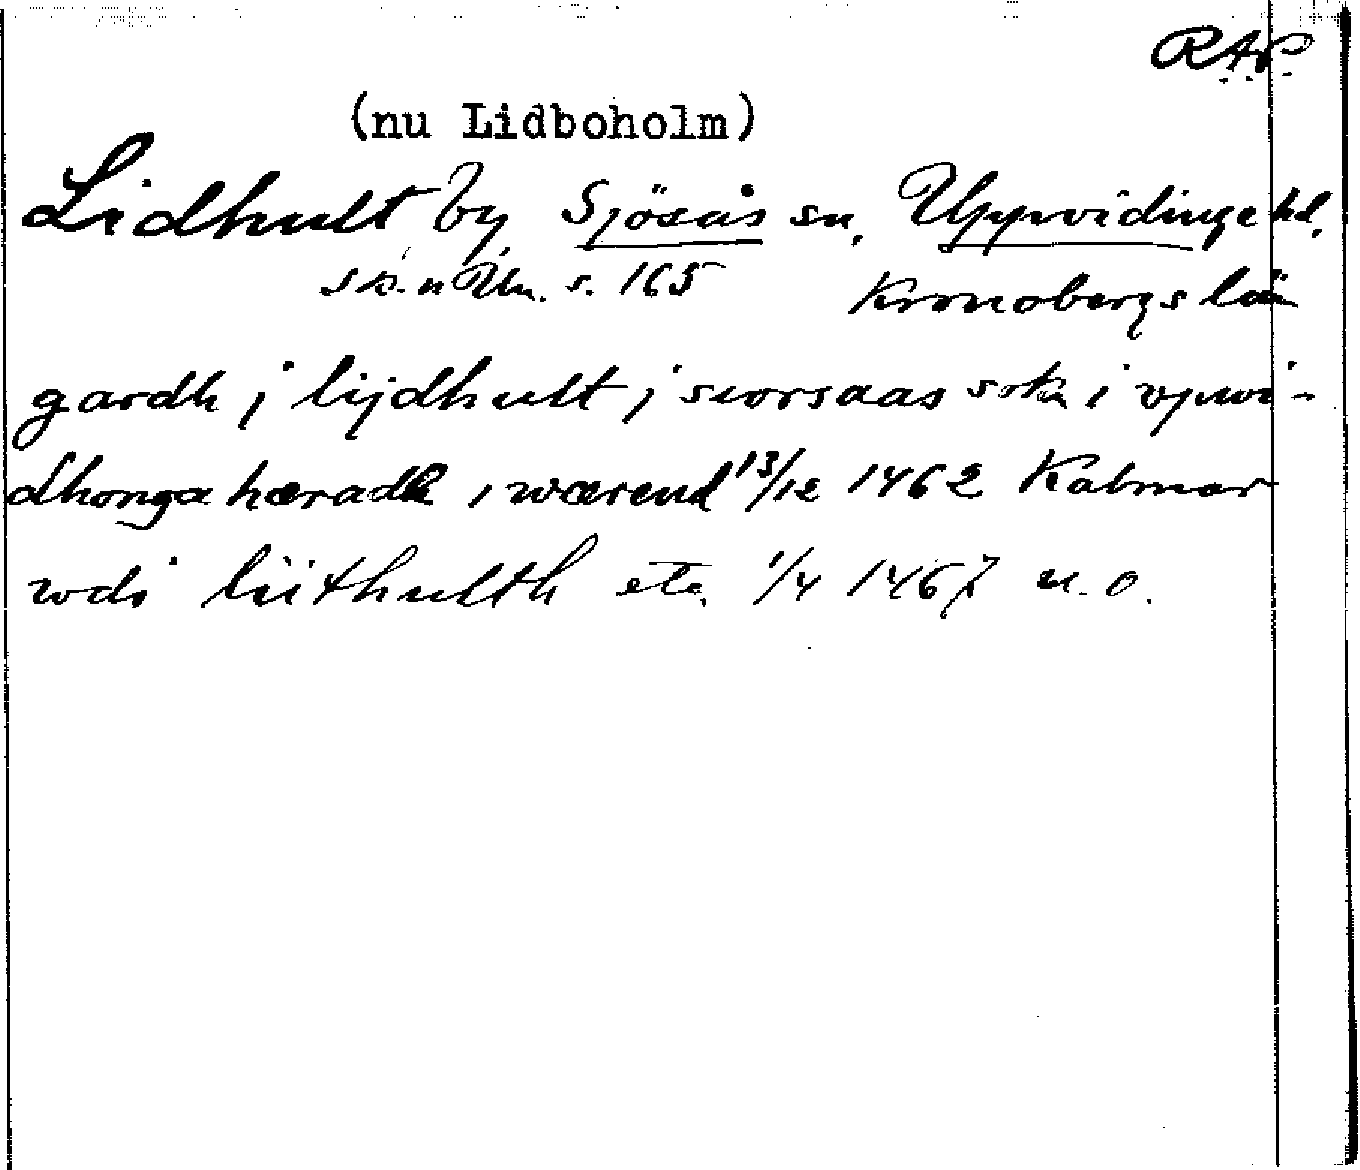 RAP.
(nu Lidboholm)
Lidhult by Sjösås sn, Uppvidinge hd,
sk. n Un. s. 165 Kronobergs län
gardh j lijdhult j siorsaas sokn i vpwi-
dhonga hæradh i wærend 13/12 1462 Kalmar
wdi liithulth etc. 1/4 1467 u. o.